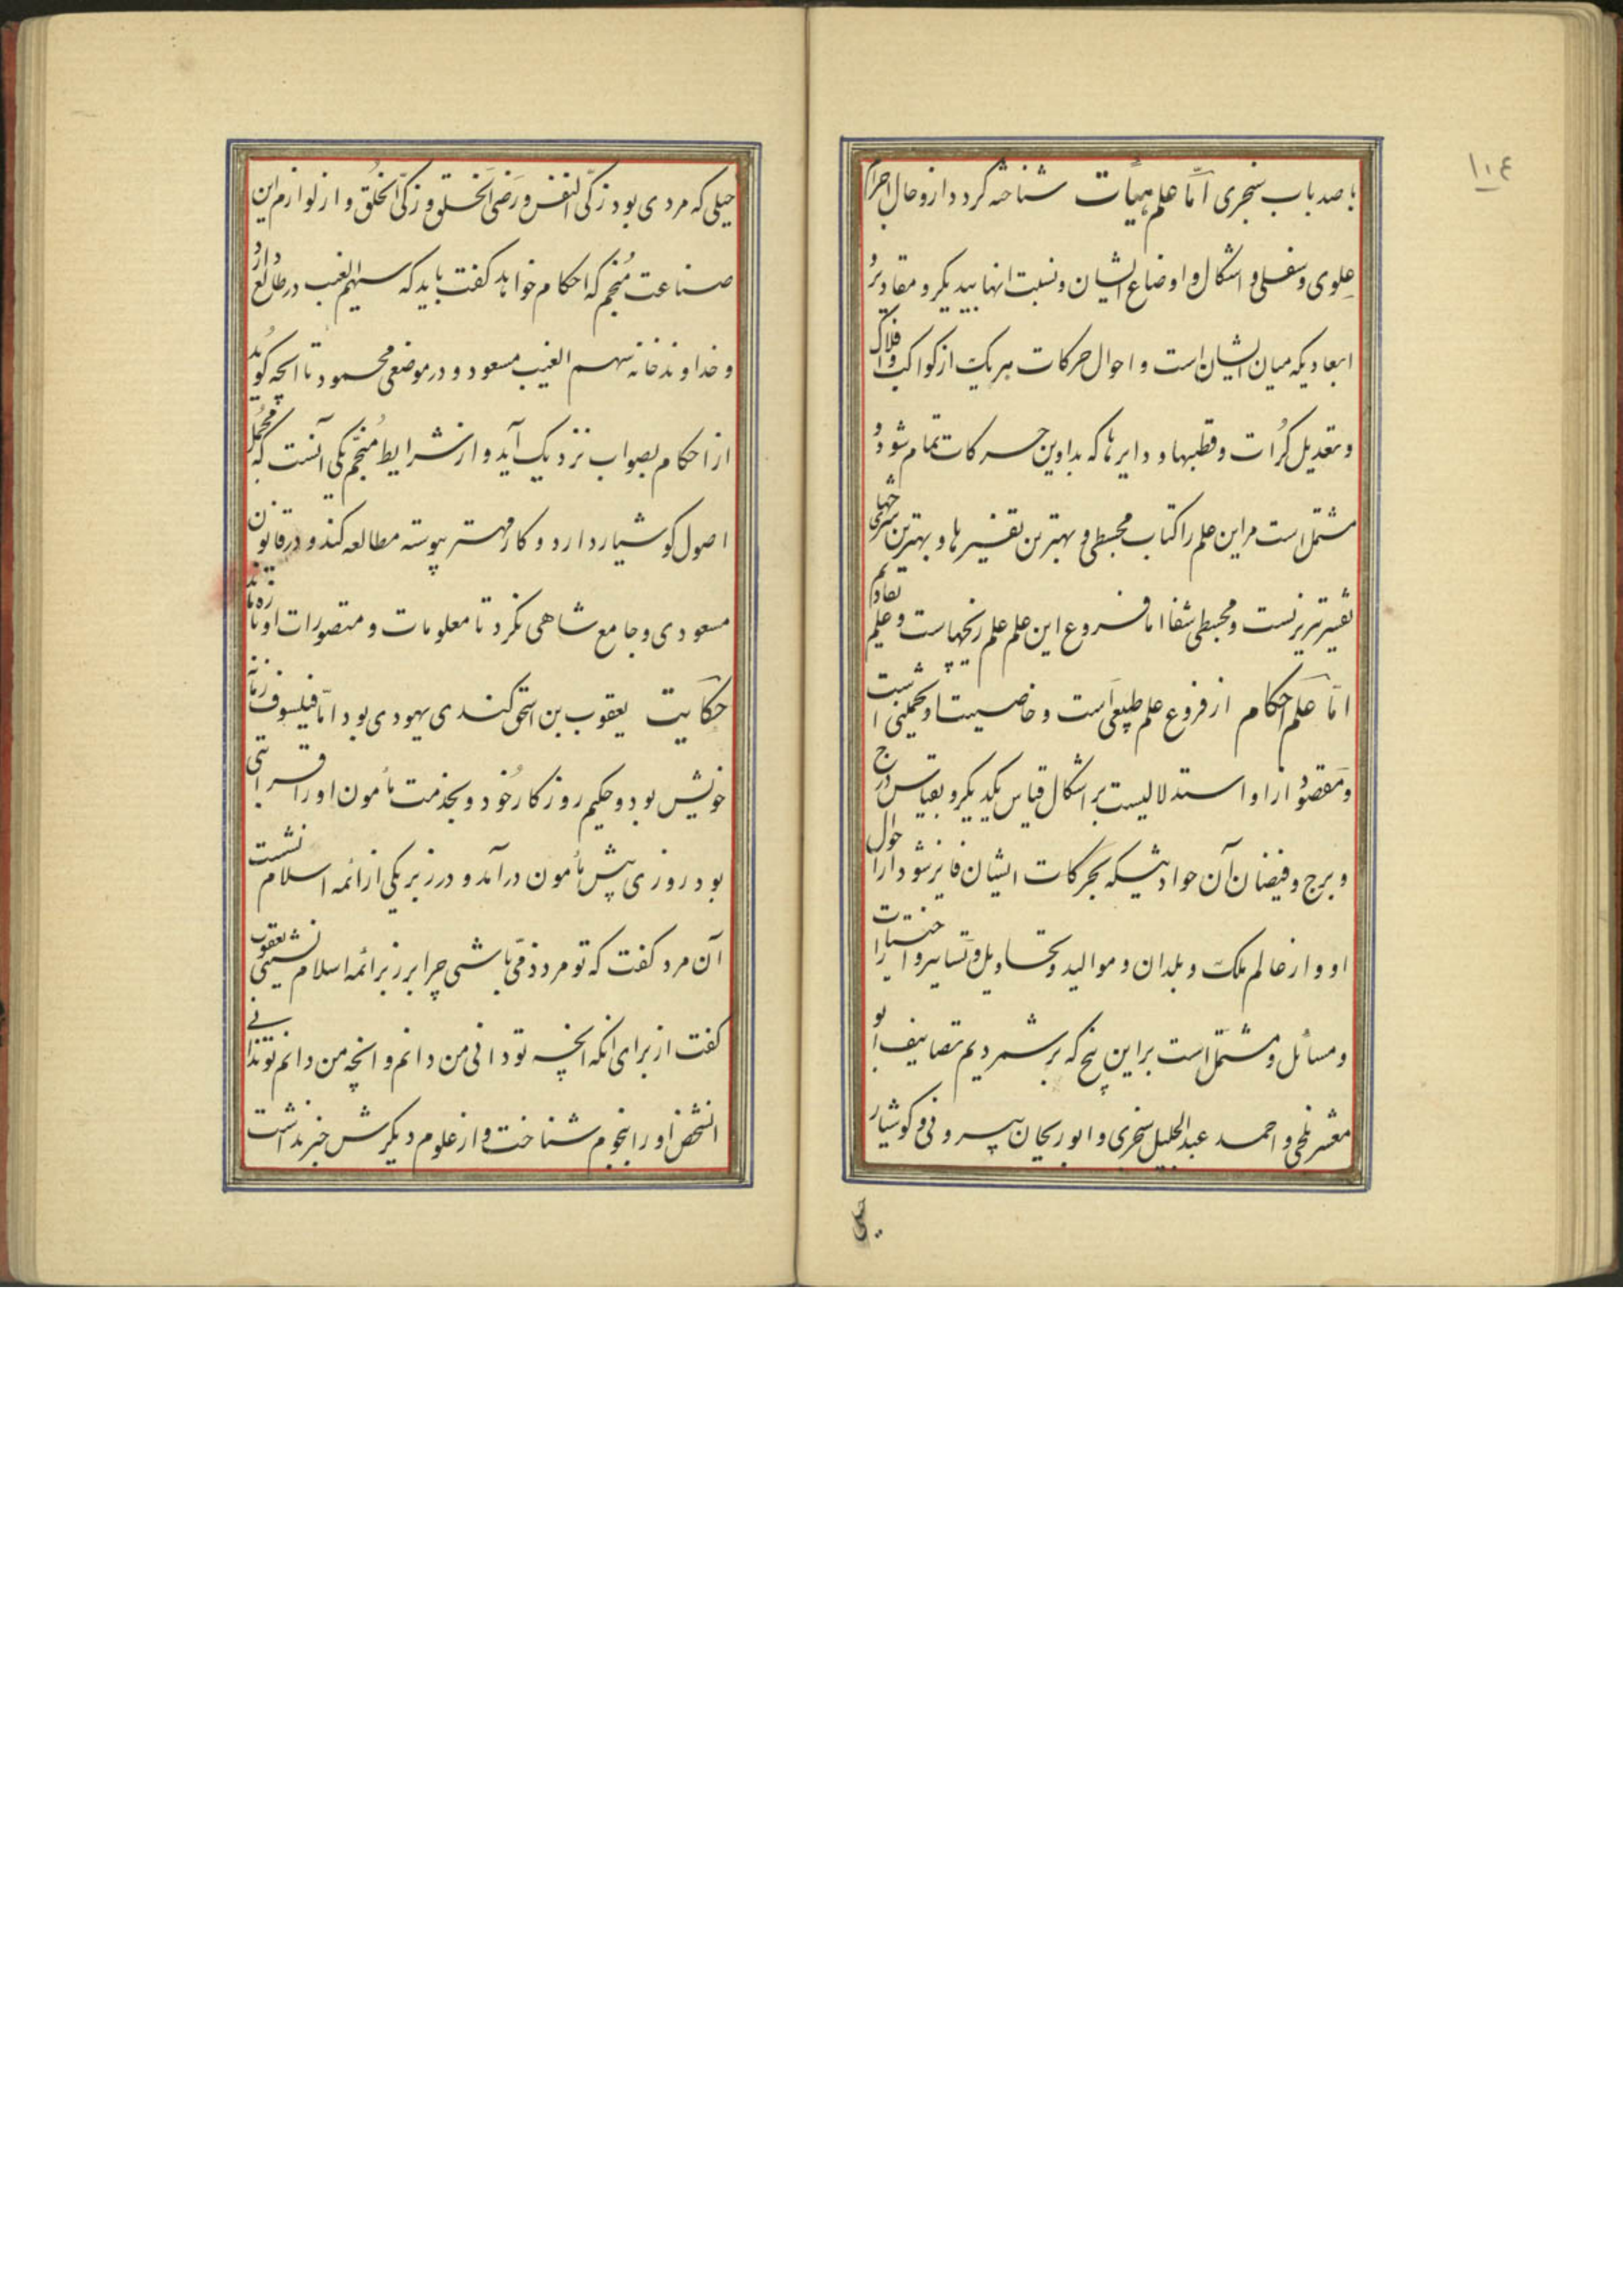 ١٠٤
با صد باب سنجری امّا علم هیأت شناخته گردد ازو حال اجرام
علوی و سفلی و اشکال و اوضاع ایشان و نسبت انها بیدیکر و مقادیر و
ابعادیکه میان ایشان است و احوال حرکات هر یک از کواکب و افلاک
و تعدیل کُرات و قطبها و دایرها که بدا وین حرکات تمام شود و
مشتمل است مر این علم را کتاب مجسطی و بهترین تفسیرها و بهترین شرحهای
تفسیر تبریزست و مجسطی شفا اما فروع این علم علم زیجهاست و علم تقاویم
امّا علم احکام از فروع علم طبیعی است و خاصیت او تخمینی است
و مقصود از او استدلالیست بر اشکال قیاس یکدیکر و بقیاس درج
و برج و فیضان آن حوادثیکه بحرکات ایشان فایز شود از احوال
او وار عالم ملک و بلدان و موالید و تحاویل و تسایر و اختیارات
و مسائل و مشتمل است بر این پنج که بر شمردیم تصانیف ابو
معشر بلخی و احمد عبد الجلیل سنجری و ابو ریحان بیرونی و کوشیار
جیلی
جیلی که مردی بود زکیّ النفس و رَضیّ الخلق و زکیّ الخُلق و از لوازم این
صناعت مُنجم که احکام خواهد کفت باید که سهم الغیب در طالع دارد
و خداوند خانه سهم الغیب مسعود و در موضعی محمود تا انچه کوید
از احکام بصواب نزدیک آید و از شرایط مُنجّم یکی آنست که مجمل
اصول کوشیار دارد و کار مهتر پیوسته مطالعه کند و در قانون
مسعودی و جامع شاهی نکرد تا معلومات و متصورات او تازه ماند
حکایت یعقوب بن اسحق کندی یهودی بود امّا فیلسوف زمانه
خویش بود و حکیم روزکار خُود و بخدمت مأمون او را قرابتی
بود روزی پیش مأمون درآمد و در زبر یکی از ائمه اسلام نشست
آن مرد کفت که تو مرد ذمّی باشی چرا برزبر ائمه اسلام نشینی یعقوب
کفت از برای انکه انچه تو دانی من دانم و انچه من دانم تو ندانی
انشخص او را بنجوم شناخت و از علوم دیکرش خبر نداشت